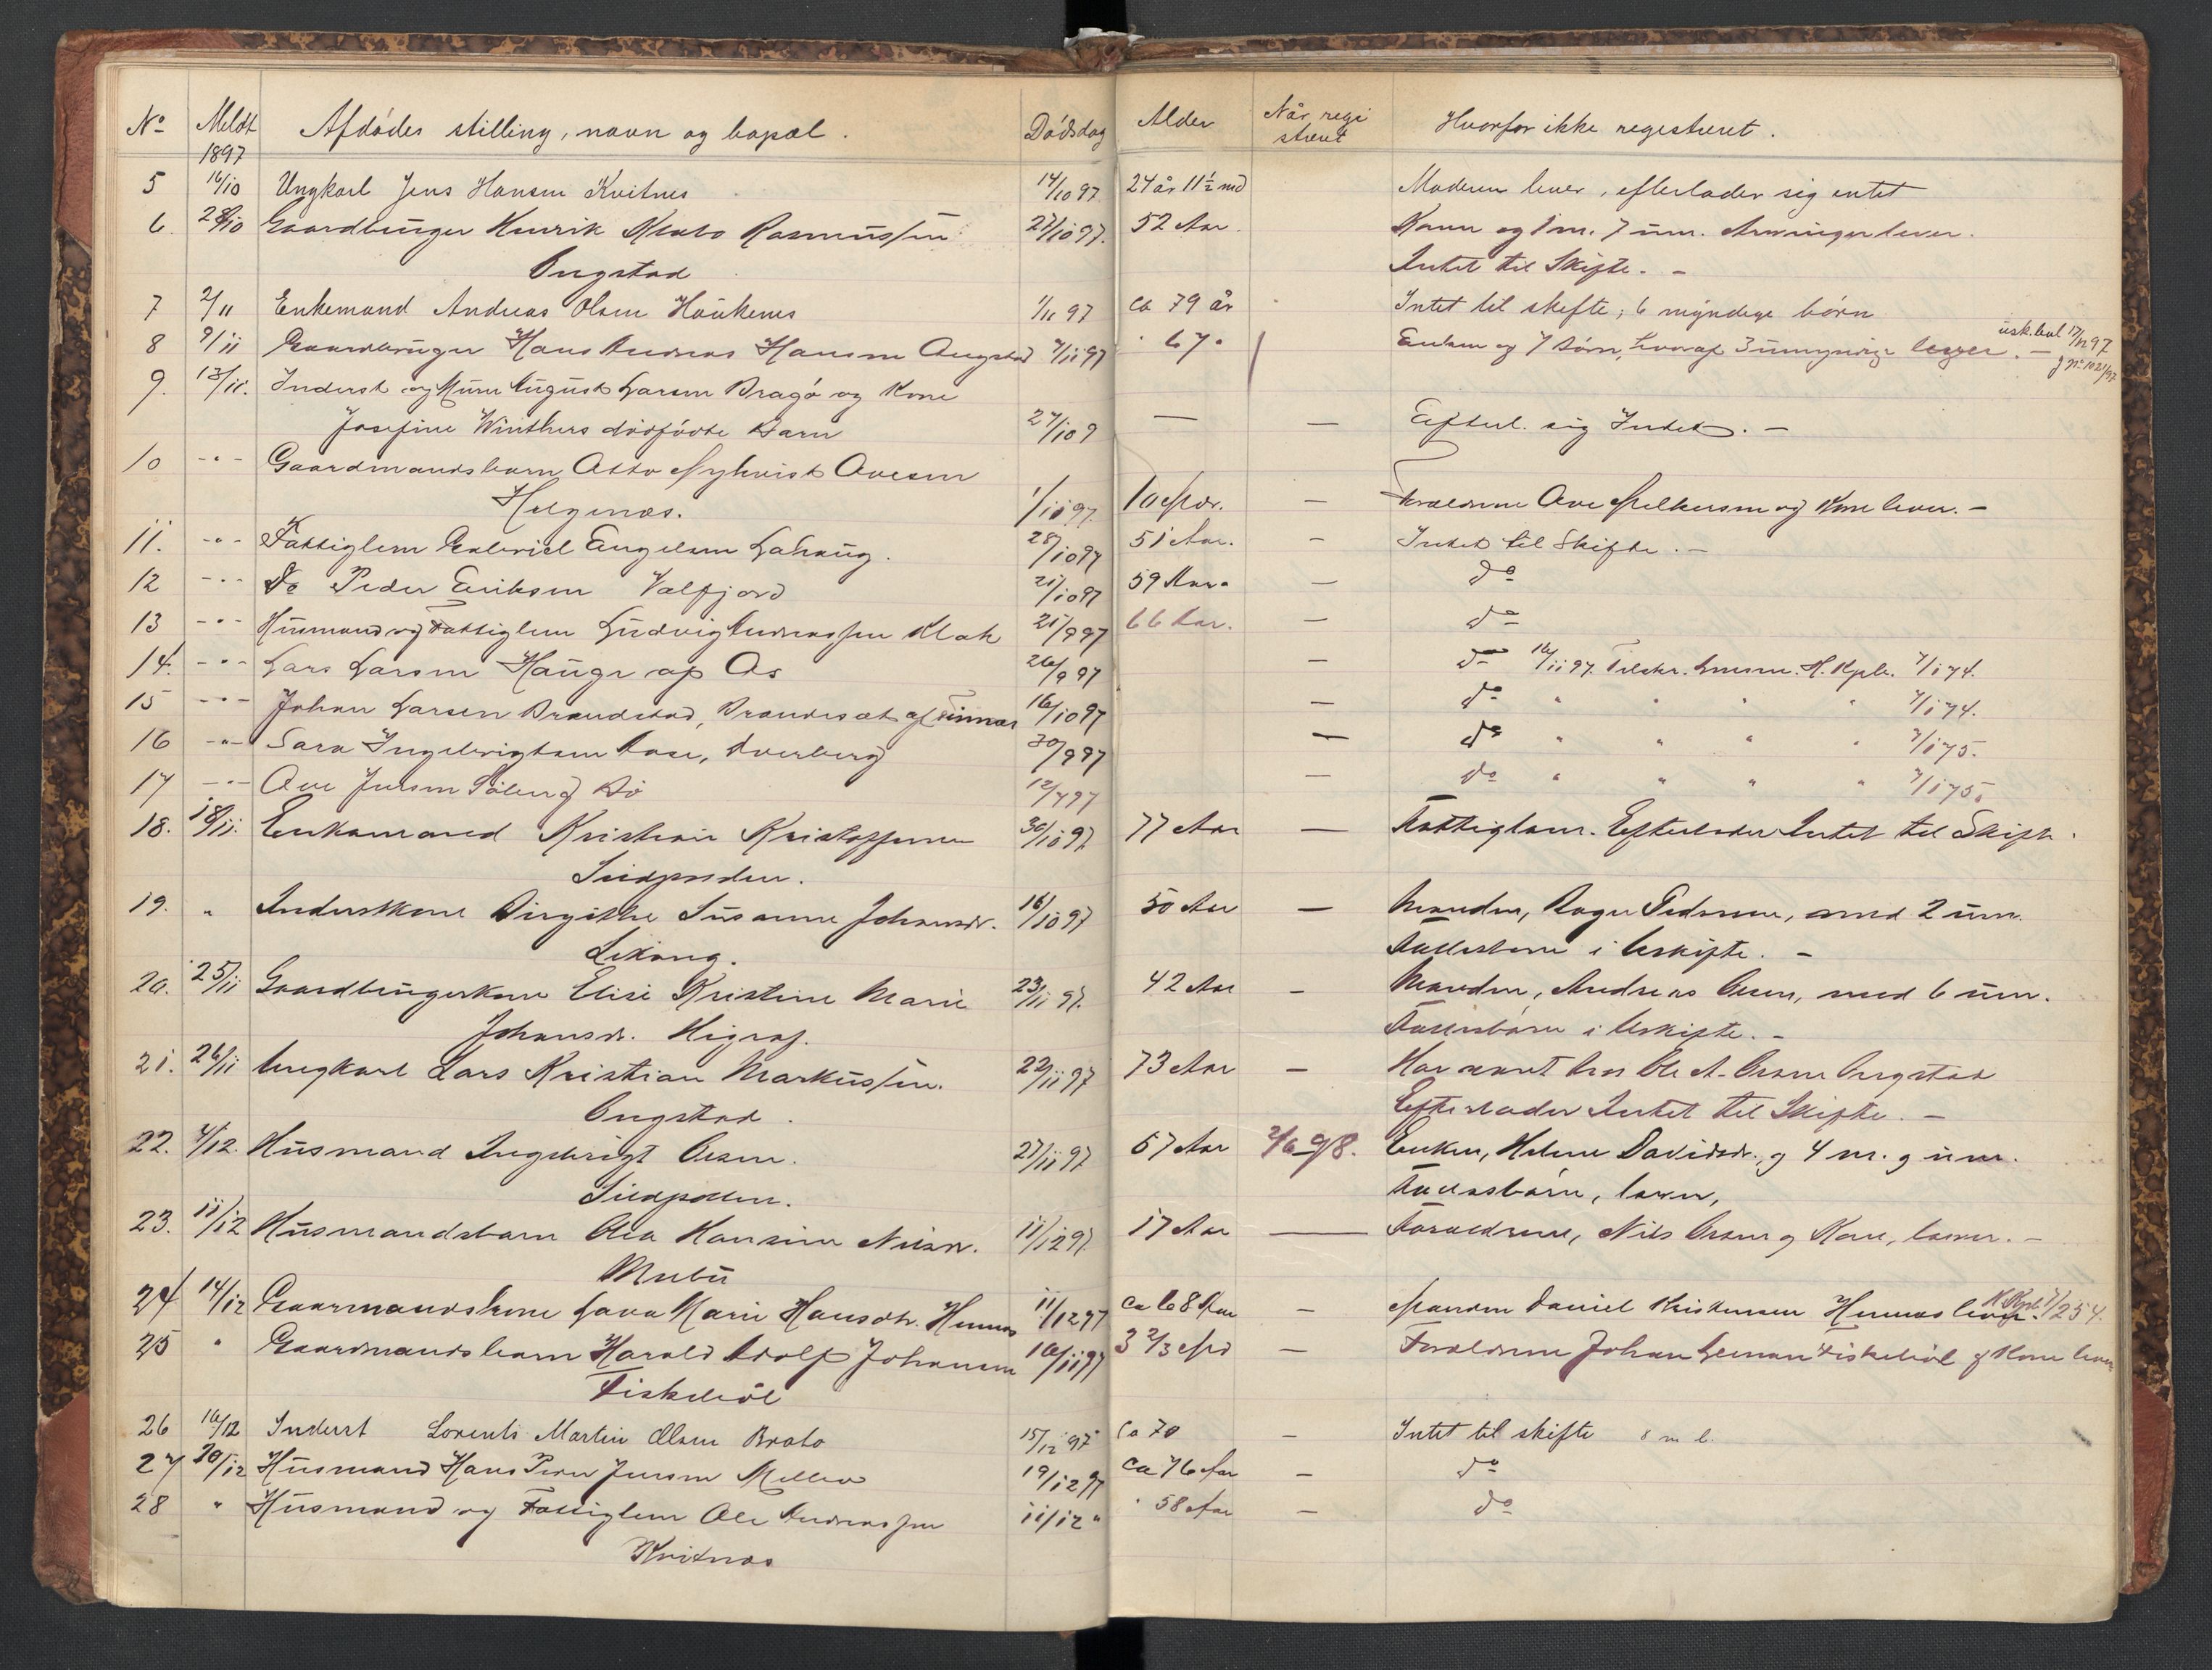 No Meldt Afdødes stilling, navn og bopæl. Dødsdag Alder Når regi Hvorfor ikke registreret.
1897 streret
5 16/10 Ungkarl Jens Hansen Kvitnes 14/10 97 24 år 11½ md Moderen lever, efterlader sig intet
6. 28/10 Gaardbruger Henrik Rasmussen 27/10 97. 52 Aar. Konen og 1 m. 7 um. Arvinger lever.
Ongstad Intet til Skifte. -
7 2/11 Enkemand Andreas Olsen Haukenes 1/11 97 ca 79 år Intet til skifte; 6 myndige børn
8 9/11 Gaardbruger Hans Andreas Hansen Ongstad 7/11 97 " 67 " Enken og 7 børn, hvoraf 3 umyndige lever. - usk.bev 17/12 97
9. 13/11. Inderst og Murer August Larsen Bragø og Kone
Josefine Winthers dødfødte Barn 27/10 9 — — Efterl. sig Intet. -
10 -"- Gaardmandsbarn Otto Nykvist Ovesen
Helgenæs. 1/11 97. 10 Mdr. — Forældrene Ove Melkersen og Kone lever. -
11. -"- Fattiglem Gabriel Engelsen Lahaug. 28/10 97 51 Aar. — Intet til Skifte. -
12 -"- Do Peder Eriksen Valfjord 21/10 97 59 Aar. — do
13 -"- Husmand og Fattiglem Ludvig Andreassen Klak 21/9 97 66 Aar. — do
14. -"- Lars Larsen Hauge af Os 26/9 97 — do 16/11 97. Tilskr. Lensm. H. Kplb. 7/1 74.
15 -"- Johan Larsen Brandstad, Brandsæt af Finnaas 16/10 97 — do " " " " 7/1 74.
16 -"- Sara Ingebrigtsen Aase, Averberg 30/9 97 — do " " " " 7/1 75.
17 -"- Ove Jensen Søberg Bø 12/7 97 — do " " " " 7/1 75.
18. 18/11. Enkemand Kristian Kristoffersen 30/10 97. 77 Aar — Fattiglem. Efterlader Intet til Skifte.
Sildpollen.
19. " Inderstkone Birgithe Susanne Johansdr. 16/10 97 50 Aar — Manden, Roger Pedersen, med 2 um.
Fællesbørn i Uskifte. -
20. 25/11 Gaardbrugerkone Elise Kristine Marie 23/11 97. 42 Aar — Manden, Andreas Olsen, med 6 um.
Johansdr. Higraf. Fællesbørn i Uskifte. -
21. 26/11 Ungkarl Lars Kristian Markussen. 22/11 97 73 Aar — Har været hos Ole A. Olsen Ongstad
Ongstad. Efterlader Intet til Skifte. -
22. 4/12. Husmand Ingebrigt Olsen. 27/11 97 67 Aar 2/6 98. Enken, Helene Davidsdr., og 4 m. og um.
Sildpollen. Fællesbørn, lever,
23. 11/12 Husmandsbarn Olea Hansine Nilsdr. 11/12 97. 17 Aar — Forældrene, Nils Olsen og Kone, lever. -
Melbu
24 14/12 Gaardmandskone Lava Marie Hansdtr. Hennes 11/12 97 ca 68 Aar — Manden Daniel Kristensen Hennes lever. 7/2 54.
25 " Gaardmandsbarn Harald Adolf Johansen 16/11 97 3 2/3 Md — Forældrene Johan Leenan Fiskebøl og Kone lever
Fiskebøl
26 16/12 Inderst Lorents Martin Olsen Brato 15/12 97 Ca 70 — Intet til skifte 8 m b.
27 20/12 Husmand Hans Peter Jensen Melbu 19/12 97 ca 76 Aar — do
28 " Husmand og Fattiglem Ole Andreassen 11/12 " " 58 Aar — do
Kvitnes